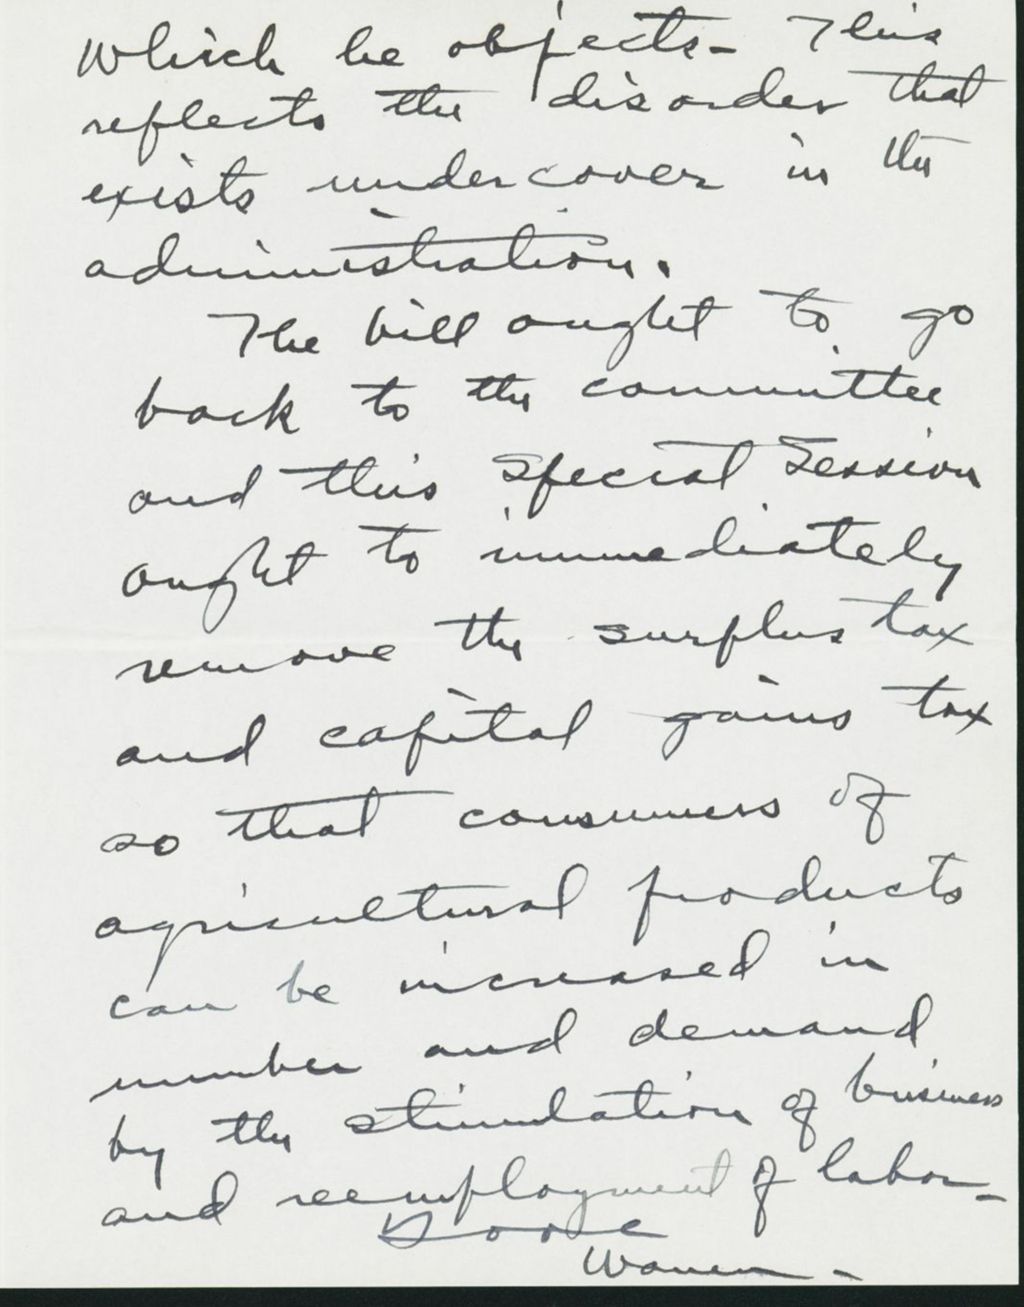 which he objects - This
reflects the disorder that
exists undercover in the
administration.
The bill ought to go
back to the committee
and this special session
ought to immediately
remove the surplus tax
and capital gains tax
so that consumers of
agricultural products
can be increased in
number and demand
by the stimulation of business
and reemployment of labor -
Warren -